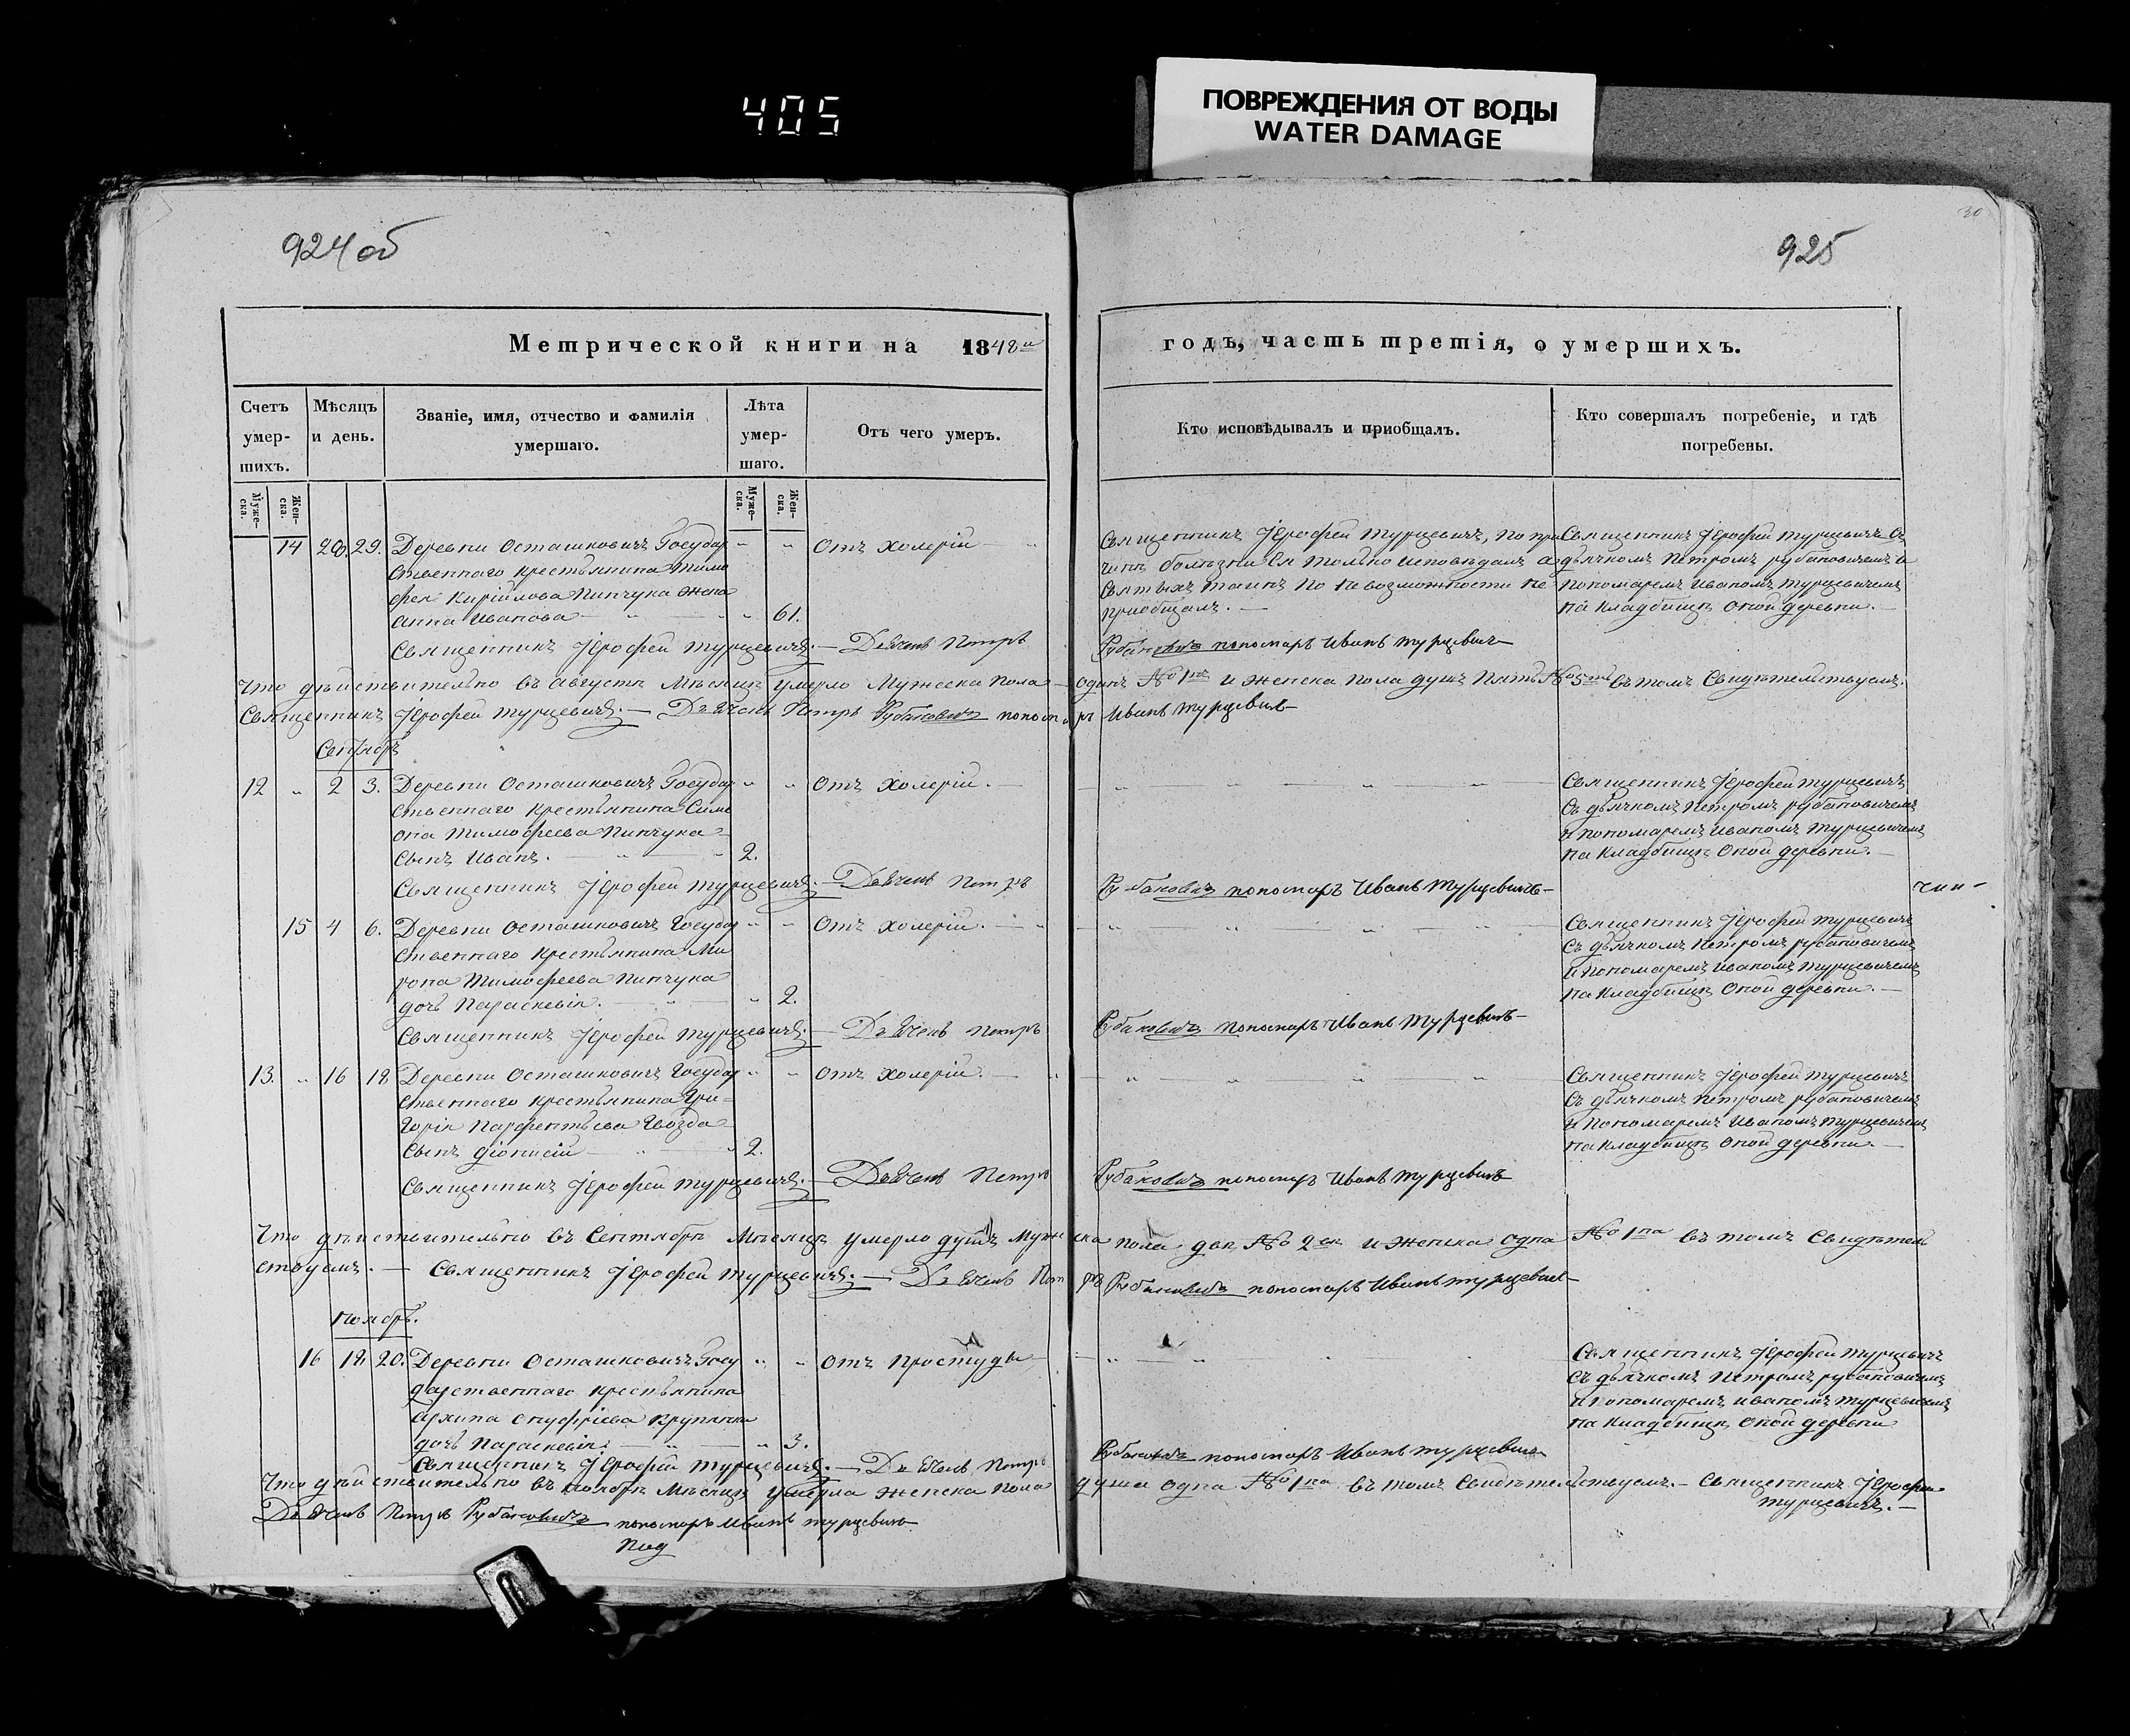 405
ПОВРЕЖДЕНИЯ ОТ ВОДЫ
WATER DAMAGE
30
924 об
925
Метрической книги на 1848й
годъ, часть третія, о умершихъ.
Счетъ умер-шихъ.
Мѣсяцъ и день.
Званіе, имя, отчество и фамилія умершаго.
Лѣта умер-шаго.
Отъ чего умеръ.
Кто исповѣдывалъ и пріобщалъ.
Кто совершалъ погребеніе, и гдѣ погребены.
Муже-ска.
Жен-ска.
Муже-ска.
Жен-ска.
14 28. 29. Деревни Осташковичъ Государ
ственнаго крестьянина Тимо
фея Кирійлова Пинчука жена
Анна Иванова 61.
Отъ холеріи
Священникъ Іерофей Турцевичъ, по при
чинѣ болѣзни Ея только исповѣдалъ а
Святыхъ таинъ по невозможности не
пріобщалъ.
Священникъ Іерофей Турцевичъ Съ
дьячкомъ Петромъ Рубановичемъ и
пономаремъ Иваномъ Турцевичемъ
на кладбищѣ оной деревни.
Священникъ Іерофей Турцевичъ. — Дьячекъ Петръ Рубановичъ пономаръ Иванъ Турцевичъ
Что дѣйствительно въ Августѣ Мѣсяцѣ умерло Мужеска пола одинъ № 1нъ и женска пола душъ пять № 5ть въ томъ Свидѣтельствуемъ.
Священникъ Іерофей Турцевичъ. — Дьячекъ Петръ Рубановичъ пономаръ Иванъ Турцевичъ
Сентябрь
12 " 2 3. Деревни Осташковичъ Государ
ственнаго крестьянина Симе
она Тимофеева Пинчука
сынъ Иванъ. 2.
Отъ холеріи.
Священникъ Іерофей Турцевичъ
Съ дьячкомъ Петромъ Рубановичемъ
и пономаремъ Иваномъ Турцевичемъ
на кладбищѣ оной деревни.
Священникъ Іерофей Турцевичъ. — Дьячекъ Петръ Рубановичъ пономаръ Иванъ Турцевичъ
чин-
15 4 6. Деревни Осташковичъ Государ
ственнаго крестьянина Ми
рона Тимофеева Пинчука
дочь Параскевія. 2.
Отъ холеріи.
Священникъ Іерофей Турцевичъ
Съ дьячкомъ Петромъ Рубановичемъ
и пономаремъ Иваномъ Турцевичемъ
на кладбищѣ оной деревни.
Священникъ Іерофей Турцевичъ. — Дьячекъ Петръ Рубановичъ пономаръ Иванъ Турцевичъ
13. " 16 18 Деревни Осташковичъ Государ
ственнаго крестьянина Гри-
горія Парфентьева Гвозда
сынъ Діонисій 2.
Отъ холеріи.
Священникъ Іерофей Турцевичъ
Съ дьячкомъ Петромъ Рубановичемъ
и пономаремъ Иваномъ Турцевичемъ
на кладбищѣ оной деревни.
Священникъ Іерофей Турцевичъ. — Дьячекъ Петръ Рубановичъ пономаръ Иванъ Турцевичъ
Что дѣйствительно въ Сентябрѣ Мѣсяцѣ умерло душъ Мужеска пола двѣ № 2ѣ и Женска одна № 1на въ томъ Свидѣтель
ствуемъ. — Священникъ Іерофей Турцевичъ. — Дьячекъ Петръ Рубановичъ пономаръ Иванъ Турцевичъ
Ноябрь.
16 18. 20. Деревни Осташковичъ Госу
дарственнаго крестьянина
Архипа Онуфріева Крупянки
дочь Параскевія. 3.
Отъ простуды
Священникъ Іерофей Турцевичъ
Съ дьячкомъ Петромъ Рубановичемъ
и пономаремъ Иваномъ Турцевичемъ
на кладбищѣ оной деревни
Священникъ Іерофей Турцевичъ. — Дьячекъ Петръ Рубановичъ пономаръ Иванъ Турцевичъ
Что дѣйствительно въ Ноябрѣ Мѣсяцѣ умерла Женска пола душа одна № 1на въ томъ Свидѣтельствуемъ. — Священникъ Іерофей
Турцевичъ. —
Дьячекъ Петръ Рубановичъ пономаръ Иванъ Турцевичъ